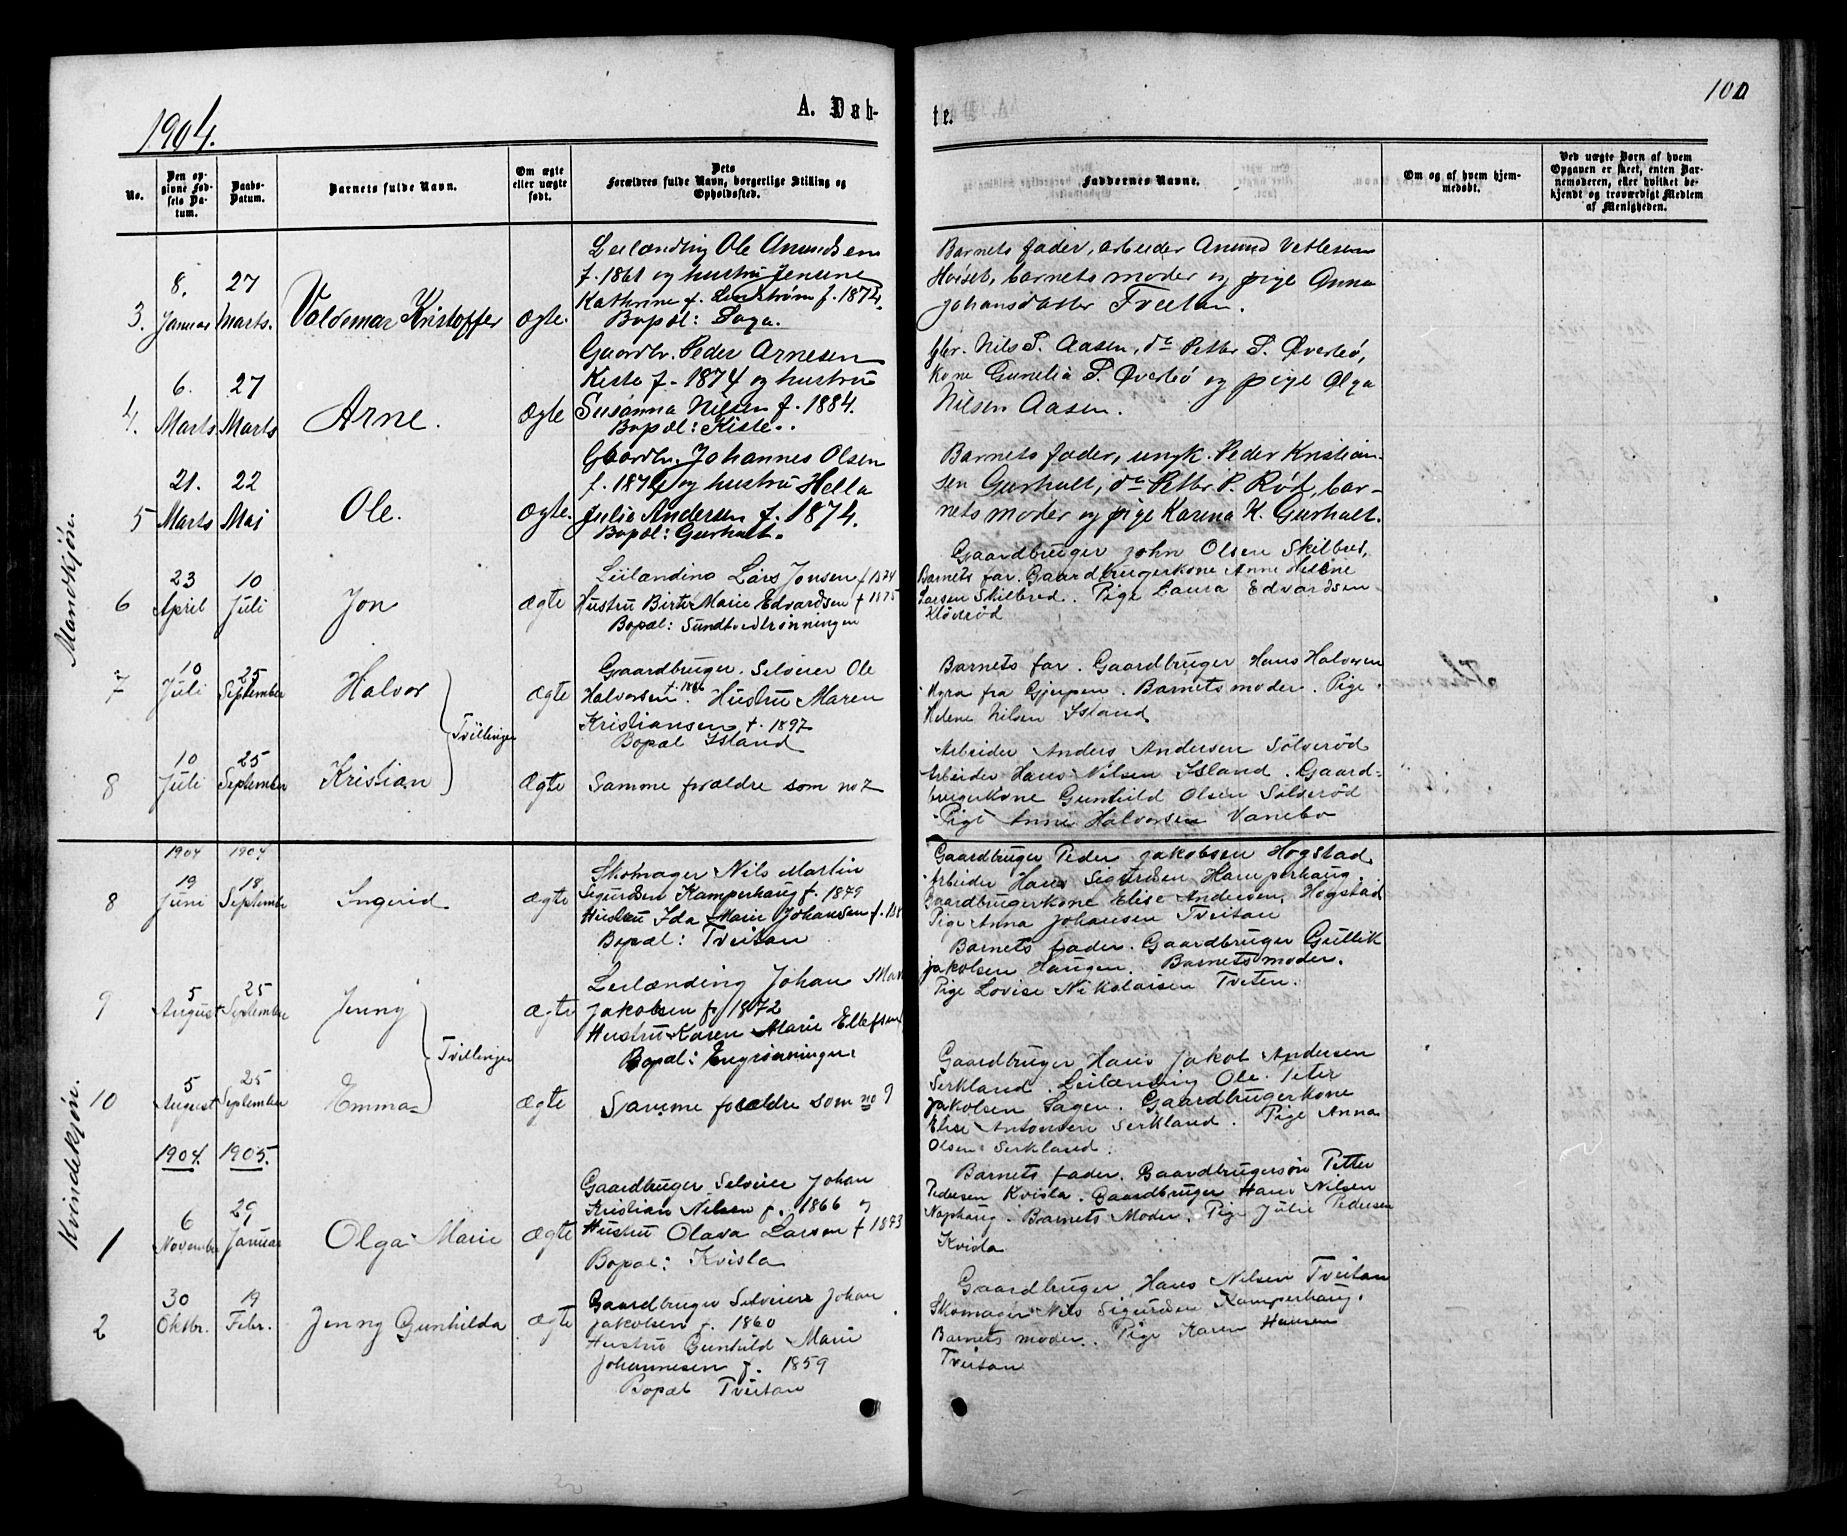 1904.
A. Døb-
te.
100
No.
Den op-
givne Fød-
sels Da-
tum.
Daabs-
Datum.
Barnets fulde Navn.
Om ægte
eller uægte
født.
Dets
Forældres fulde Navn, borgerlige Stilling og
Opholdssted.
Faddernes Navne.
Om og af hvem hjem-
medøbt.
Ved uægte Børn af hvem
Opgaven er skeet, enten Bar-
nemoderen, eller hvilket be-
kjendt og troværdigt Medlem
af Menigheden.
Mandkjøn.
3.
8.
Januar
27
Marts.
Valdemar Kristoffer
ægte.
Leilænding Ole Amundsen
f. 1861 og hustru Jensine
Kathrine f. Lindstrøm f. 1874.
Bopæl: Saga.
Barnets fader, arbeider Amund Vetlesen
Hviset, barnets moder og pige Anna
Johansdatter Tveitan.
4.
6.
Marts
27
Marts
Arne.
Ægte
Gaardbr. Peder Arnesen
Kiste f. 1874 og hustru
Susanna Nilsen f. 1884.
Bopæl: Kiste.
Gbr. Nils P. Aasen, do Petter P. Øverbø,
Kone Gunelia P. Øverbø og pige Olga
Nilsen Aasen.
5
21.
Marts
22
Mai
Ole.
Ægte.
Gaardbr. Johannes Olsen
f. 1874 og hustru Hella
Julie Andersen f. 1874.
Bopæl: Gurholt.
Barnets fader, ungk. Peder Kristian-
sen Gurholt, do Petter P. Röd, bar-
nets moder og pige Karina K. Gurholt.
6
23
April
10
Juli
Jon
Ægte
Leilænding Lars Jonsen f 1874
Hustru Birte Marie Edvardsen f 1875
Bopæl: Sundtvedtrønningen
Gaardbruger John Olsen Skilbred,
Barnets far. Gaardbrugerkone Anne Helene
Larsen Skilbred. Pige Laura Edvardsen
Kløverød
7
10
Juli
25
September
Halvor
Tvillinger
ægte
Gaardbruger. Selveier Ole
Halvorsen f. 1866. Hustru Maren
Kristiansen f. 1897
Bopæl Island
Barnets far. Gaardbruger Hans Halvorsen
Myra fra Gjerpen. Barnets moder. Pige
Helene Nilsen Island
8
10
Juli
25
September
Kristian
Ægte
Samme forældre som no 7
Arbeider Anders Andersen Sölverød
Arbeider Hans Nilsen Island. Gaard-
brugerkone Gunhild Olsen Sölverød
Pige Anne Halvorsen Vanebo
Kvindekjøn.
1904
1904
8
19
Juni
18
September
Ingerid
ægte
Skomager Nils Martin
Sigurdsen Kamperhaug f. 1879
Hustru Ida Marie Johansen f. 18
Bopæl: Tveitan
Gaardbruger Peder Jakobsen Hogstad
Arbeider Hans Sigurdsen Hamperhaug.
Gaardbrugerkone Elise Andersen, Hogstad
Pige Anna Johansen Tveitan
9
5
August
25
September
Jenny
Tvillinger
Ægte
Leilænding Johan Mar
Jakobsen f. 1872
Hustru Karen Marie Ellefsen
Bopæl: Engrønningen
Barnets fader. Gaardbruger Gullik
Jakobsen Haugen. Barnets moder.
Pige Lovise Nikolaisen Tveten.
10
5
August
25
September
Emma
ægte
Samme forældre som no 9
Gaardbruger Hans Jakob Andersen
Serkland. Leilænding Ole Peter
Jakobsen Sagen. Gaardbrugerkone
Elise Antonsen Serkland. Pige Anna
Olsen Serkland.
1904.
1905.
1
6
November
29
Januar
Olga Marie
ægte
Gaardbruger Selveier Johan
Kristian Nilsen f. 1866 og
Hustru Olava Larsen f 1873
Bopæl: Kvisla
Barnets fader. Gaardbrugersøn Petter
Pedersen Kvisla. Gaardbruger Hans Nilsen
Naphaug. Barnets Moder. Pige Julie Pedersen
Kvisla
2
30
Oktbr.
19
Febr.
Jenny Gunhilda
ægte
Gaardbruger Selveier Johan
Jakobsen f. 1860
Hustru Gunhild Marie
Johannesen f. 1859
Bopæl Tveitan
Gaardbruger Hans Nilsen Tveitan
Skomager Nils Sigurdsen Kamperhaug.
Barnets moder. Pige Karen Hansen
Tveitan